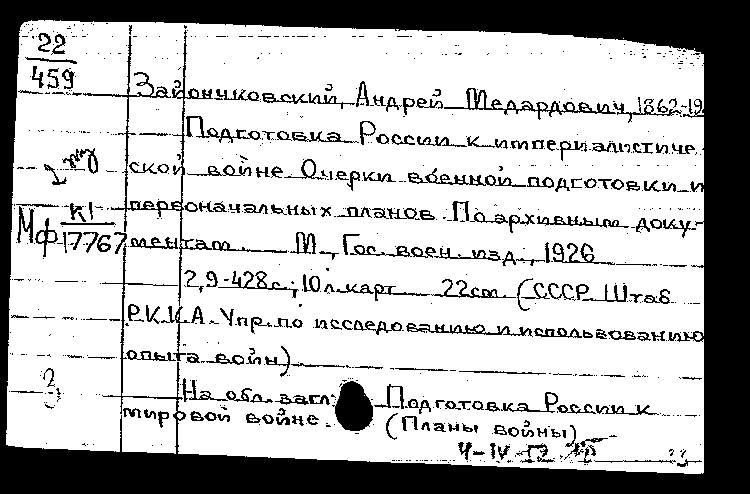 22
459
Зайончковский, Андрей Медардович, 1862-19
Подготовка России к империалистиче-
ской войне. Очерки военной подготовки и
первоначальных планов. По архивным доку-
Мф К1
17767
ментам. М., Гос. воен. изд., 1926
2,9-428с.; 10л. карт. 22см. (СССР. Штаб
Р.К.К.А. Упр. по исследованию и использованию
опыта войн).
На обл. загл.: Подготовка России к
мировой войне. (Планы войны)
4-IV-52